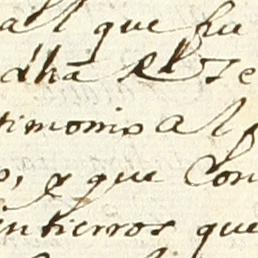 al que fu
dha Rl Te
timonio al p
s, y que Con
entierros que